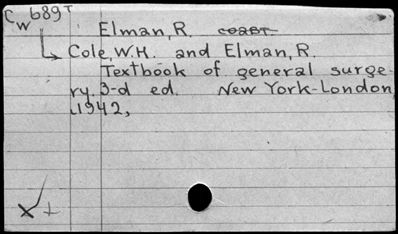 C 689 T
w
Elman, R. coast.
Cole, W.H. and Elman, R.
Textbook of general surge-
ry. 3-d ed. New York-London,
1942,
x +